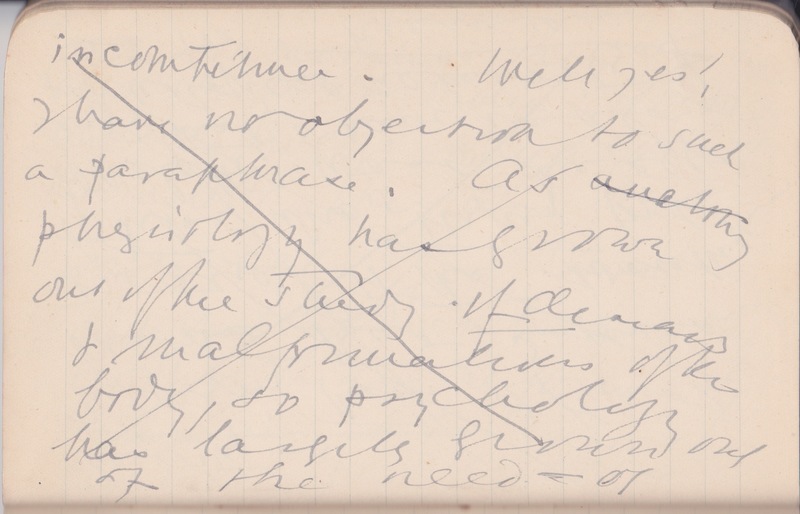 incontinence. Well yes!
I have no objection to such
a paraphrase. As anatomy
physiology has grown
out of the study of disease
& malformations of the
body, so psychology
has largely grown out
of the need – of